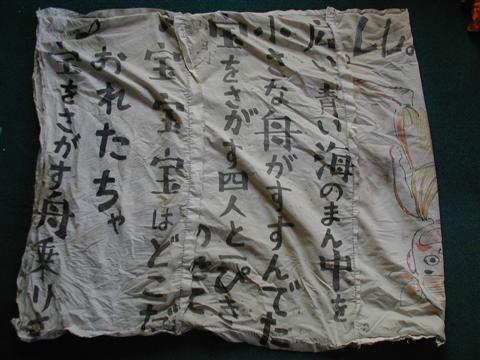 広い、青い海のまん中を
小さな舟がすすんでた
宝をさがす四人と一ぴき
のせて
♪宝宝宝はどこだ
♪おれたちゃ
宝をさがす舟乗りさ